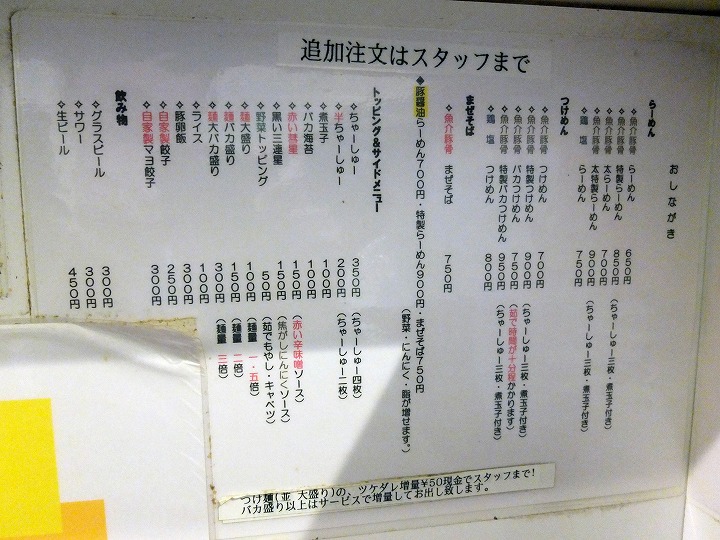 追加注文はスタッフまで
おしながき
らーめん
◇魚介豚骨 らーめん 650円
◇魚介豚骨 特製らーめん 850円 (ちゃーしゅー三枚・煮玉子付き)
◇魚介豚骨 太らーめん 700円
◇魚介豚骨 太特製らーめん 900円 (ちゃーしゅー三枚・煮玉子付き)
◇鶏 塩 らーめん 750円
つけめん
◇魚介豚骨 つけめん 700円
◇魚介豚骨 特製つけめん 900円 (ちゃーしゅー三枚・煮玉子付き)
◇魚介豚骨 バカつけめん 750円 (茹で時間が十分程かかります)
◇魚介豚骨 特製バカつけめん 950円 (ちゃーしゅー三枚・煮玉子付き)
◇鶏 塩 つけめん 800円
まぜそば
◇魚介豚骨 まぜそば 750円
◆豚醤油らーめん700円・特製らーめん900円・まぜそば750円
(野菜・にんにく・脂が増せます。)
トッピング&サイドメニュー
◇ちゃーしゅー 350円 (ちゃーしゅー四枚)
◇半ちゃーしゅー 200円 (ちゃーしゅー二枚)
◇煮玉子 100円
◇バカ海苔 100円
◇赤い彗星 150円 (赤い辛味噌ソース)
◇黒い三連星 150円 (焦がしにんにくソース)
◇野菜トッピング 50円 (茹でもやし・キャベツ)
◇麺大盛り 100円 (麺量 一・五倍)
◇麺バカ盛り 150円 (麺量 二倍)
◇麺大バカ盛り 300円 (麺量 三倍)
◇ライス 100円
◇豚卵飯 300円
◇自家製餃子 250円
◇自家製マヨ餃子 300円
飲み物
◇グラスビール 300円
◇サワー 300円
◇生ビール 450円
つけ麺(並 大盛り)の、ツケダレ増量¥50現金でスタッフまで!
バカ盛り以上はサービスで増量してお出し致します。